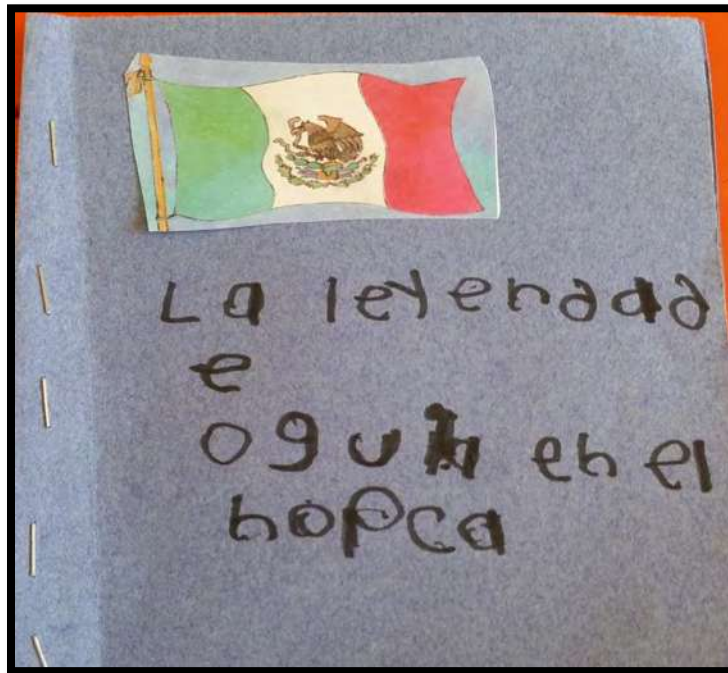 La leyenada
e
ogun en el
nopca